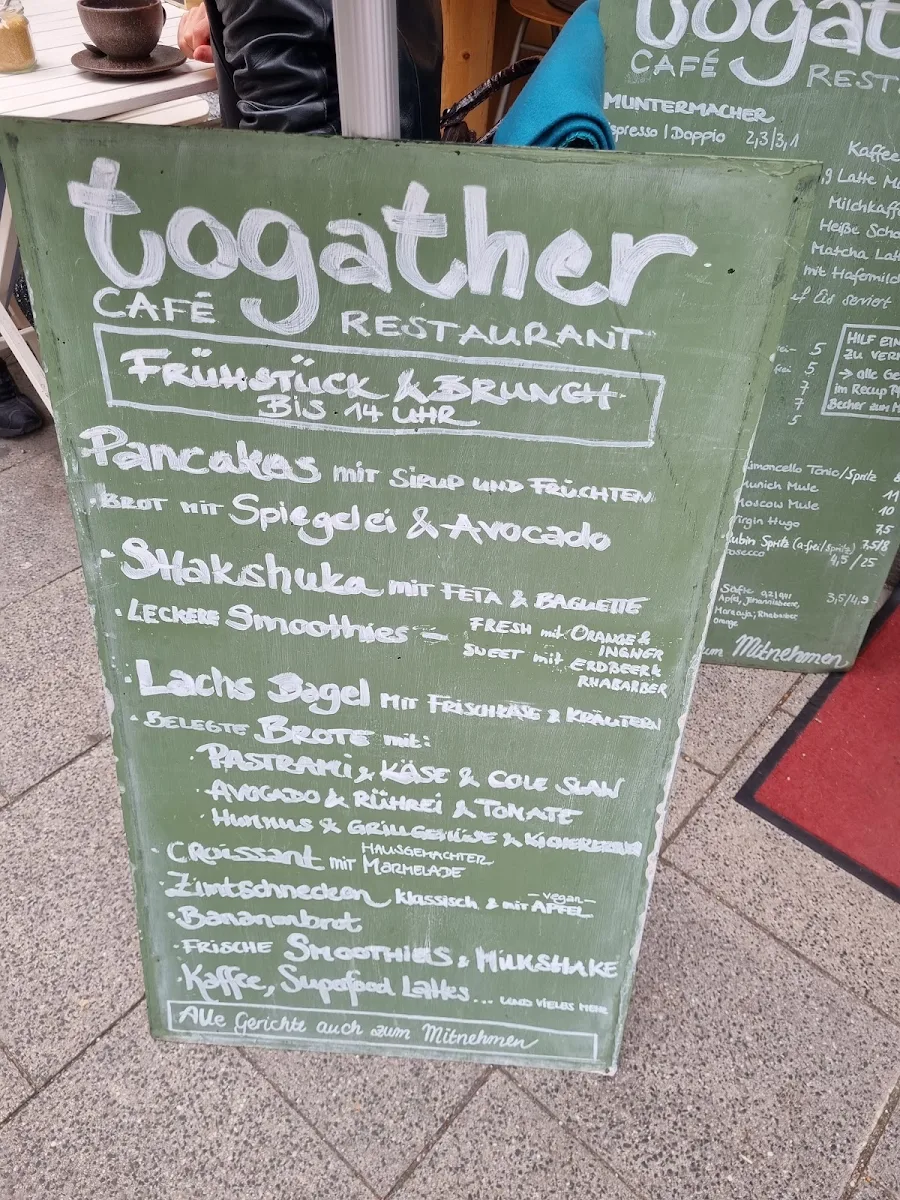 togather
CAFÉ RESTAURANT
FRÜHSTÜCK & BRUNCH
BIS 14 UHR
Pancakes mit SIRUP UND FRÜCHTEN
BROT MIT Spiegelei & Avocado
SHakshuka mit FETA & BAGUETTE
LECKERE Smoothies - FRESH mit ORANGE &
INGWER
SWEET mit ERDBEER &
RHABARBER
Lachs Bagel MIT FRISCHKÄSE & KRÄUTERN
BELEGTE BROTE mit:
PASTRAMI & KÄSE & COLE SLAW
AVOCADO & RÜHREI & TOMATE
HUMMUS & GRILLGEMÜSE &
CROissant mit HAUSGEMACHTER
MARMELADE
Zimtschnecken klassisch & mit APFEL
-vegan-
Bananenbrot
FRISCHE SMOOTHIES & MILKSHAKE
Kaffee, Superfood Lattes... UND VIELES MEHR
Alle Gerichte auch zum Mitnehmen
togat
CAFÉ REST
MUNTERMACHER
spresso | Doppio 2,3|3,1
Kaffee
Latte Ma
Milchkaff
Heiße Scho
Matcha Lat
mit Hafermilch
f Eis serviert
5
5
7
7
5
HILF EIN
ZU VER
→ alle Ge
im Recup
Becher zum M
imoncello Tonic/Spritz
Munich Mule 11
Moscow Mule 10
Virgin Hugo 7,5
ubin Spritz (a-frei/spritz) 7,5/8
rosecco 4,5 / 25
Säfte 0,2|0,4l 3,5/4,9
Apfel, Johannisbeere,
Maracuja, Rhabarber
Orange
um Mitnehmen